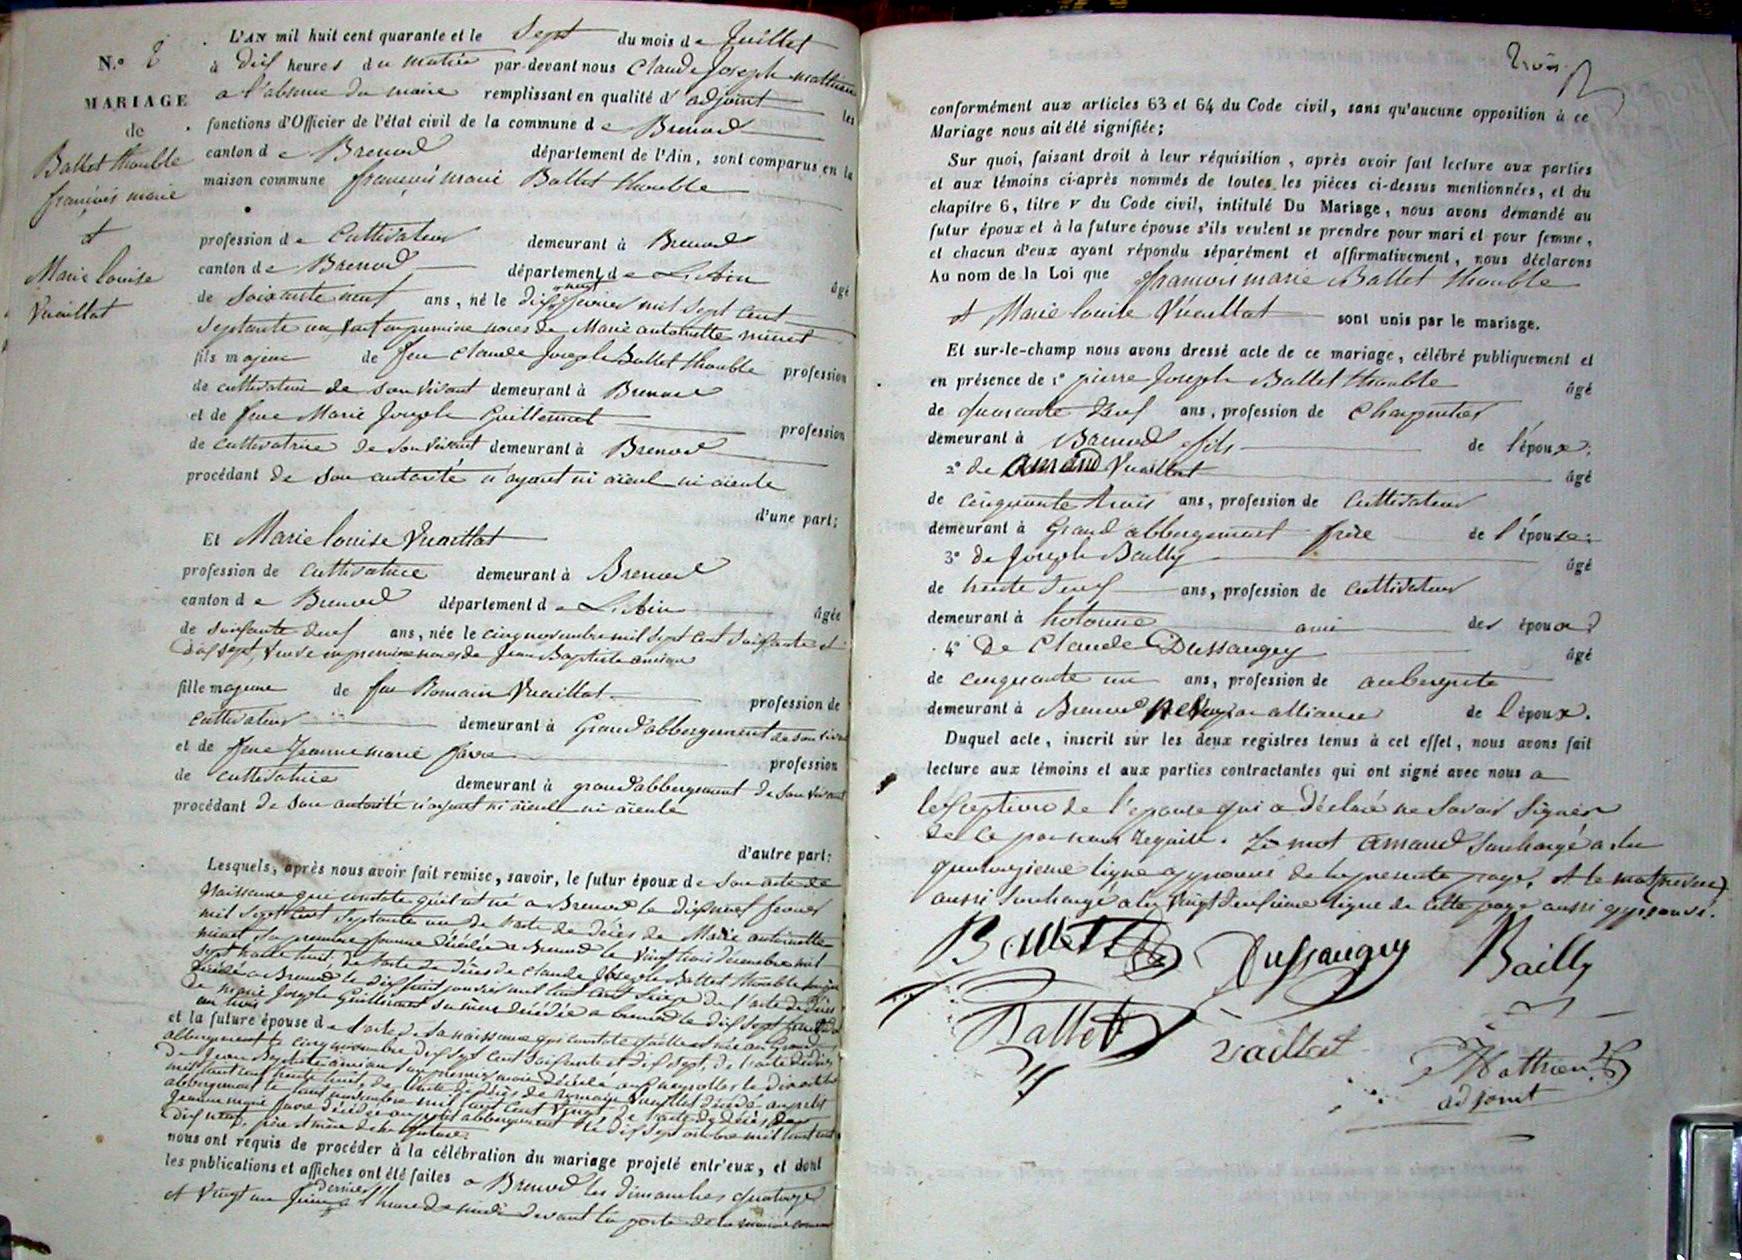 N.° 2
MARIAGE
de
Ballet thouble
françois marie
et
Marie louise
Vuaillat
L'AN mil huit cent quarante et le Sept du mois de Juillet
à dix heures du matin par-devant nous Claude Joseph mathieu
a l'absence du maire remplissant en qualité d'adjoint les
fonctions d'Officier de l'état civil de la commune de Brenod
canton de Brenod département de l'Ain, sont comparus en la
maison commune françois marie Ballet thouble
profession de Cultivateur demeurant à Brenod
canton de Brenod département de L'Ain âgé
de soixante neuf ans, né le dix neuf fevrier mil sept cent
septante un, veuf en premiere noces de Marie antoinette minet
fils majeur de feu Claude Joseph Ballet thouble profession
de cultivateur de son vivant demeurant à Brenod
et de feue Marie Joseph Guillermet profession
de cultivatrice de son vivant demeurant à Brenod
procédant de son autorité n'ayant ni aïeul ni aïeule
d'une part;
Et Marie louise Vuaillat
profession de cultivatrice demeurant à Brenod
canton de Brenod département de L'Ain âgée
de soixante deux ans, née le cinq novembre mil sept cent soixante et
dix sept, veuve en premiere noces de Jean Baptiste
fille majeure de feu Romain Vuaillat profession de
cultivateur demeurant à Grand abbergement de son vivant
et de feue Jeanne marie favre profession
de cultivatrice demeurant à grand abbergement de son vivant
procédant de son autorité n'ayant ni aïeul ni aïeule
d'autre part;
Lesquels, après nous avoir fait remise, savoir, le futur époux de son acte de
naissance qui constate qu'il est né a Brenod le dix neuf fevrier
mil sept cent septante un de l'acte de décès de Marie antoinette
minet sa premiere femme décédée a Brenod le vingt trois decembre mil
huit cent trente huit, de l'acte de décès de Claude Joseph Ballet thouble
décédé a Brenod le dix huit janvier mil huit cent seize de l'acte de décès
de marie Joseph Guillermet sa mere décédée a brenod le dix sept
et la future épouse de l'acte de sa naissance qui constate qu'elle est née au Grand
abbergement le cinq novembre dix sept cent soixante et dix sept, de l'acte de décès
de Jean Baptiste son premier mari décédé
mil huit cent trente huit, de l'acte de décès de Romain Vuaillat décédé au petit
abbergement le novembre mil huit cent vingt, de l'acte de décès de
Jeanne marie favre décédée au petit abbergement le dix sept octobre mil huit cent
dix neuf, père et mère de la future
nous ont requis de procéder à la célébration du mariage projeté entr'eux, et dont
les publications et affiches ont été faites a Brenod les dimanches quatorze
et vingt un Juin dernier a l'heure de midi devant la porte de la maison commune
trois
conformément aux articles 63 et 64 du Code civil, sans qu'aucune opposition à ce
Mariage nous ait été signifiée;
Sur quoi, faisant droit à leur réquisition, après avoir fait lecture aux parties
et aux témoins ci-après nommés de toutes les pièces ci-dessus mentionnées, et du
chapitre 6, titre v du Code civil, intitulé Du Mariage, nous avons demandé au
futur époux et à la future épouse s'ils veulent se prendre pour mari et pour femme,
et chacun d'eux ayant répondu séparément et affirmativement, nous déclarons
Au nom de la Loi que françois marie Ballet thouble
et Marie louise Vuaillat sont unis par le mariage.
Et sur-le-champ nous avons dressé acte de ce mariage, célébré publiquement et
en présence de 1° pierre Joseph Ballet thouble âgé
de quarante neuf ans, profession de charpentier
demeurant à Brenod fils de l'époux;
2° de amand Vuaillat âgé
de cinquante trois ans, profession de cultivateur
demeurant à Grand abbergement frère de l'épouse;
3° de Joseph Bailly âgé
de trente neuf ans, profession de cultivateur
demeurant à hotonne ami des époux;
4° de Claude Dussaugey âgé
de cinquante un ans, profession de aubergiste
demeurant à Brenod neveu par alliance de l'époux.
Duquel acte, inscrit sur les deux registres tenus à cet effet, nous avons fait
lecture aux témoins et aux parties contractantes qui ont signé avec nous a
l'exception de l'epouse qui a déclaré ne savoir signer
de ce par nous requise. Le mot amand surchargé a la
quinzieme ligne approuvé de la presente page. et le mot neveu
aussi surchargé a la vingt deuxieme ligne de cette page aussi approuvé.
Ballet Dussaugey Bailly
Ballet vaillat Mathieu
adjoint